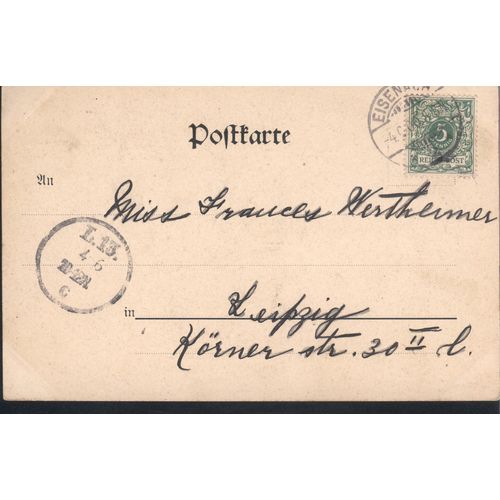 EISENACH
5
REICHSPOST
Postkarte
An
Miss Frances Wertheimer
L. 13.
4 6
G
in Leipzig
Körner str. 30 II l.